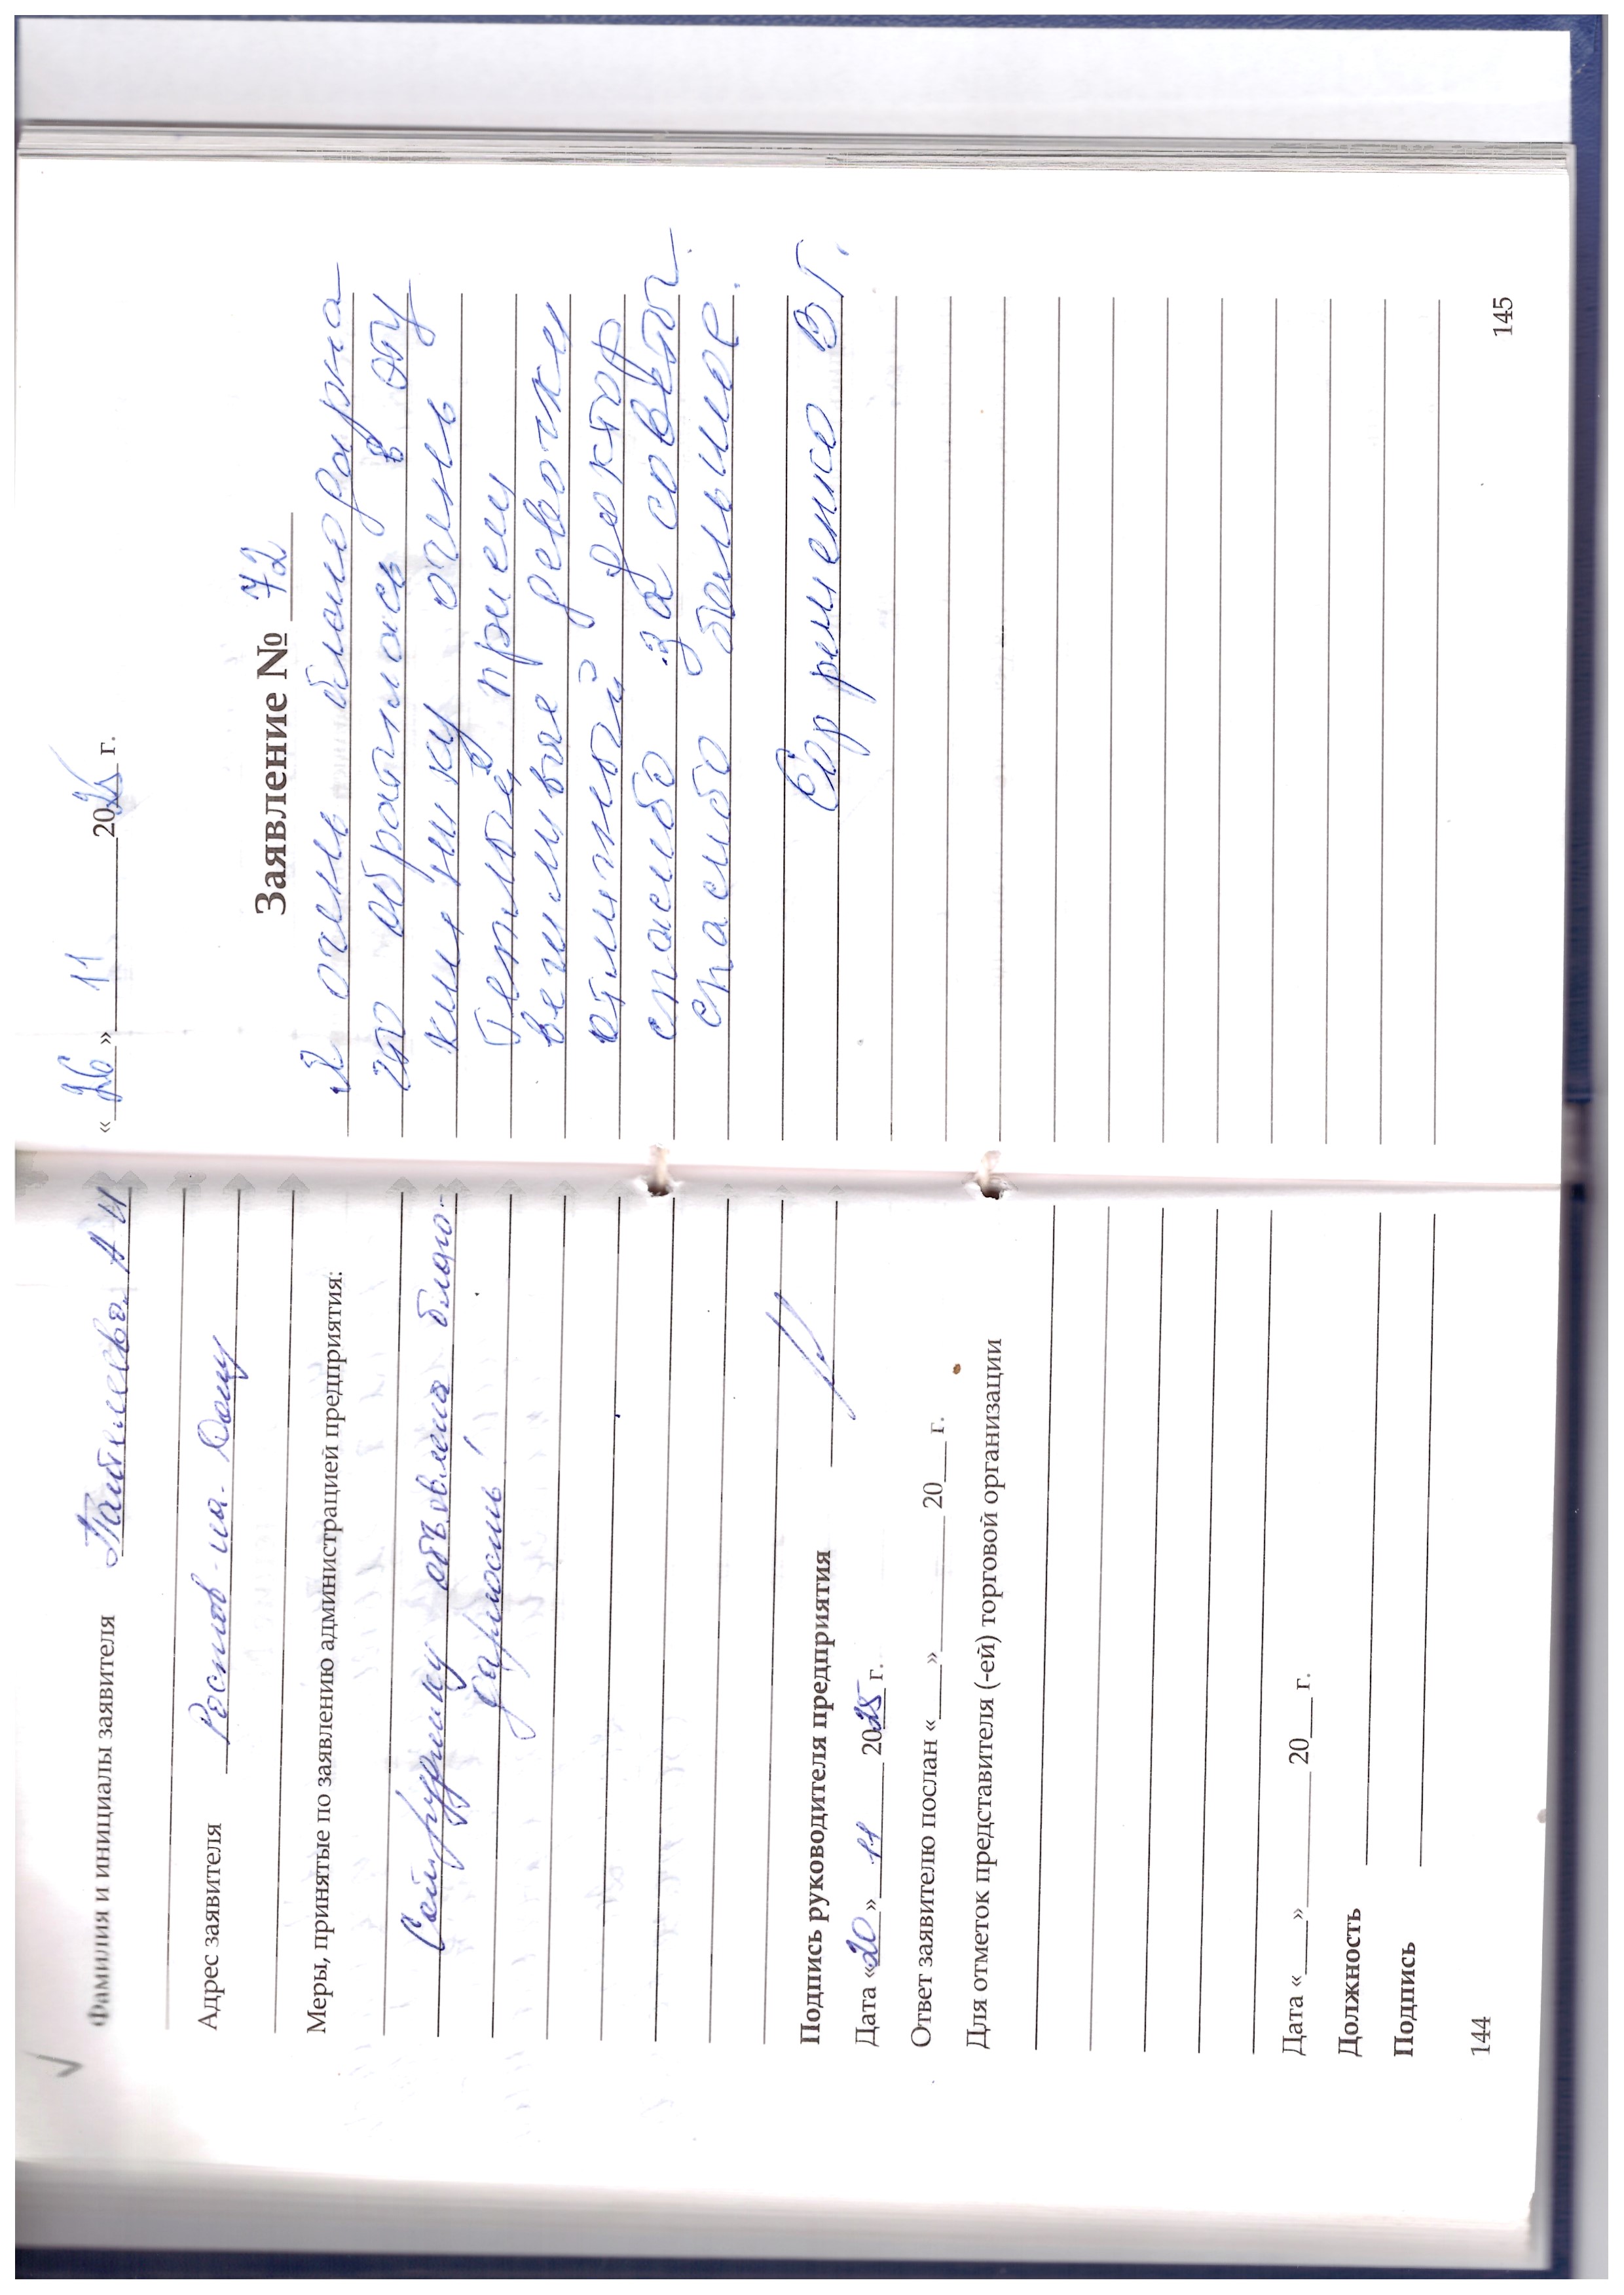 Фамилия и инициалы заявителя А И
Адрес заявителя Ростов-на-Дону
Меры, принятые по заявлению администрацией предприятия:
Сотруднику объявлена благо-
дарность!
Подпись руководителя предприятия
Дата «20» 11 2025 г.
Ответ заявителю послан «___»________ 20___ г.
Для отметок представителя (-ей) торговой организации
Дата «___»________ 20___ г.
Должность
Подпись
144
«26» 11 2025 г.
Заявление № 72
Я очень благодарна
что обратилась в эту
клинику очень
Теплый прием
вежливые девочки
отличный доктор
спасибо за совет
спасибо большое.
В Г.
145